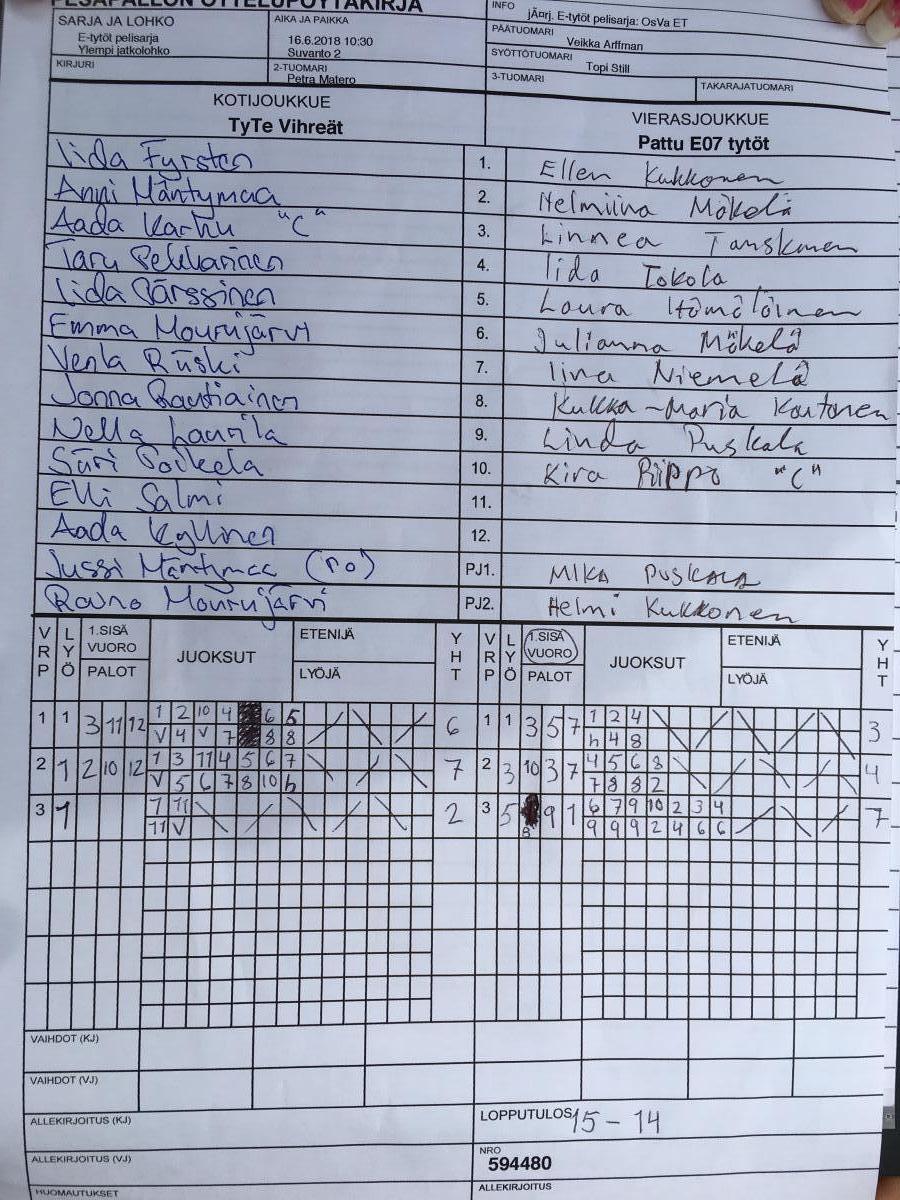 PESÄPALLON OTTELUPÖYTÄKIRJA
SARJA JA LOHKO
E-tytöt pelisarja
Ylempi jatkolohko
AIKA JA PAIKKA
16.6.2018 10:30
Suvanto 2
INFO
jÃ¤rj. E-tytöt pelisarja: OsVa ET
PÄÄTUOMARI
Veikka Arffman
SYÖTTÖTUOMARI
Topi Still
KIRJURI
2-TUOMARI
Petra Matero
3-TUOMARI
TAKARAJATUOMARI
KOTIJOUKKUE
TyTe Vihreät
VIERASJOUKKUE
Pattu E07 tytöt
Iida Fyrsten 1. Ellen Kukkonen
Anni Mäntymaa 2. Helmiina Mäkelä
Aada Karhu "C" 3. Linnea Tanskanen
Taru Pekkarinen 4. Iida Tokola
Iida Pärssinen 5. Laura Hämäläinen
Emma Mourujärvi 6. Julianna Mäkelä
Venla Ruski 7. Iina Niemelä
Jonna Rautiainen 8. Kukka-Maria Kortonen
Nella Laurila 9. Linda Puskala
Sari Poikela 10. Kira Riippo "C"
Elli Salmi 11.
Aada Kyllinen 12.
Jussi Mäntymaa (PO) PJ1. MIKA PUSKALA
Rauno Mourujärvi PJ2. Helmi Kukkonen
VRP LYÖ 1.SISÄ VUORO PALOT JUOKSUT ETENIJÄ LYÖJÄ YHT VRP LYÖ 1.SISÄ VUORO PALOT JUOKSUT ETENIJÄ LYÖJÄ YHT
1 1 3 11 12 1 2 10 4 6 5 6 1 1 3 5 7 1 2 4 3
V 4 V 7 8 8 h 4 8
2 1 2 10 12 1 3 11 4 5 6 7 7 2 3 10 3 7 4 5 6 8 4
V 5 6 7 8 10 h 7 8 8 2
3 1 7 11 2 3 5 8 9 1 6 7 9 10 2 3 4 7
11 V 9 9 9 2 4 6 6
VAIHDOT (KJ)
VAIHDOT (VJ)
ALLEKIRJOITUS (KJ)
LOPPUTULOS 15 - 14
ALLEKIRJOITUS (VJ)
NRO
594480
HUOMAUTUKSET
ALLEKIRJOITUS